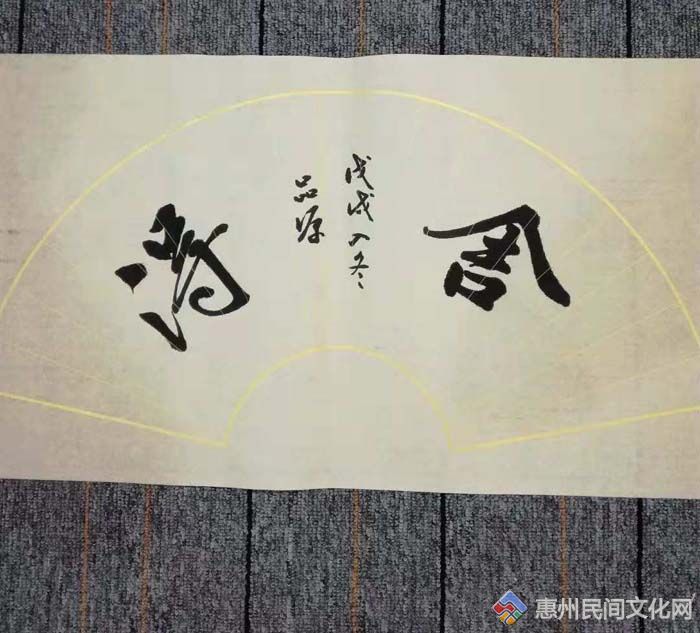 周
戊戌入冬
品源
涛
惠州民间文化网